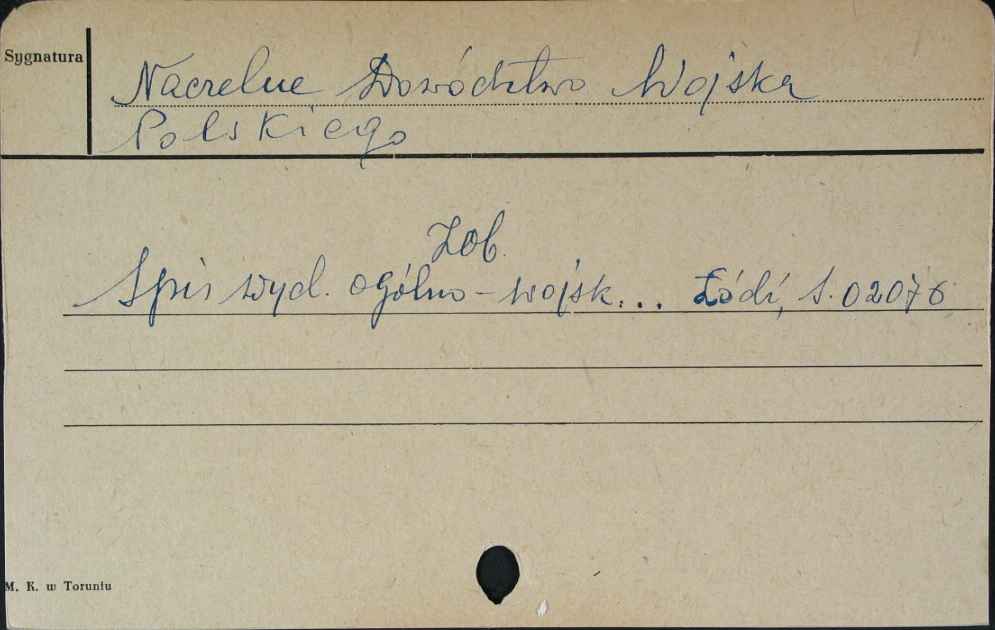 Sygnatura
Naczelne Dowództwo Wojska
Polskiego
Zob.
Spis wyd. ogólno-wojsk... Łódź, S. 02076
M. K. w Toruniu